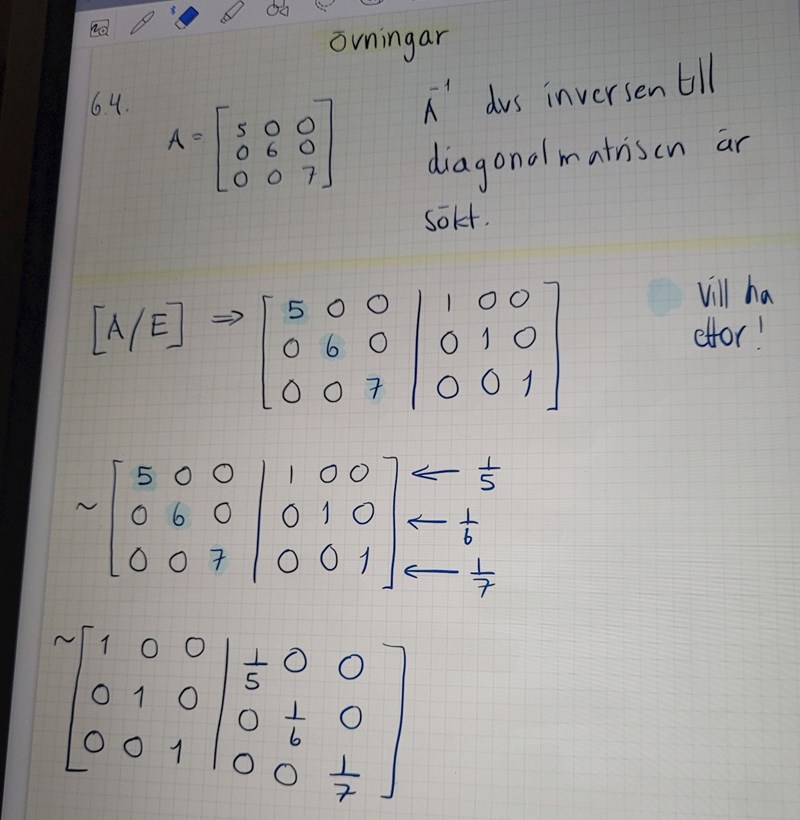 övningar
6.4.
A = [5 0 0
0 6 0
0 0 7]
A⁻¹ dvs inversen till
diagonalmatrisen är
sökt.
[A/E] ⇒ [5 0 0 | 1 0 0
0 6 0 | 0 1 0
0 0 7 | 0 0 1]
Vill ha
ettor!
~ [5 0 0 | 1 0 0] ← 1/5
0 6 0 | 0 1 0 ← 1/6
0 0 7 | 0 0 1 ← 1/7
~ [1 0 0 | 1/5 0 0
0 1 0 | 0 1/6 0
0 0 1 | 0 0 1/7]